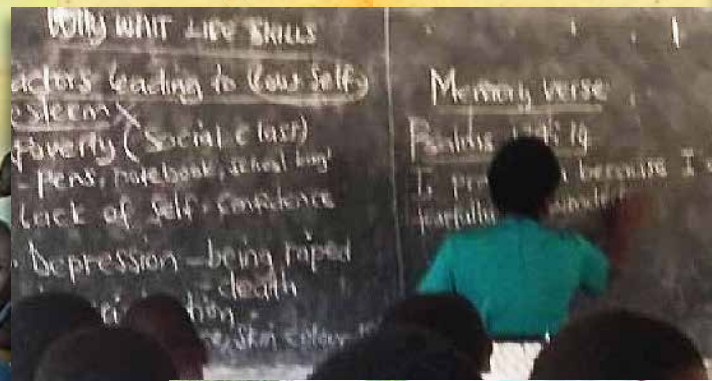 Why WAIT LIFE SKILLS
actors leading to low self
esteem
Poverty (social class)
- Pens, notebook, school bag
Lack of self-confidence
Depression - being raped
- death
tion
skin colour
Memory verse
Psalms 14
I because I
fearfully